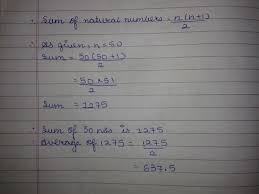 ∴ Sum of natural numbers = n(n+1)/2
∴ As given, n = 50
Sum = 50(50+1)/2
= 50×51/2
Sum = 1275
∴ Sum of 50 nos is 1275
Average of 1275 = 1275/2
= 637.5